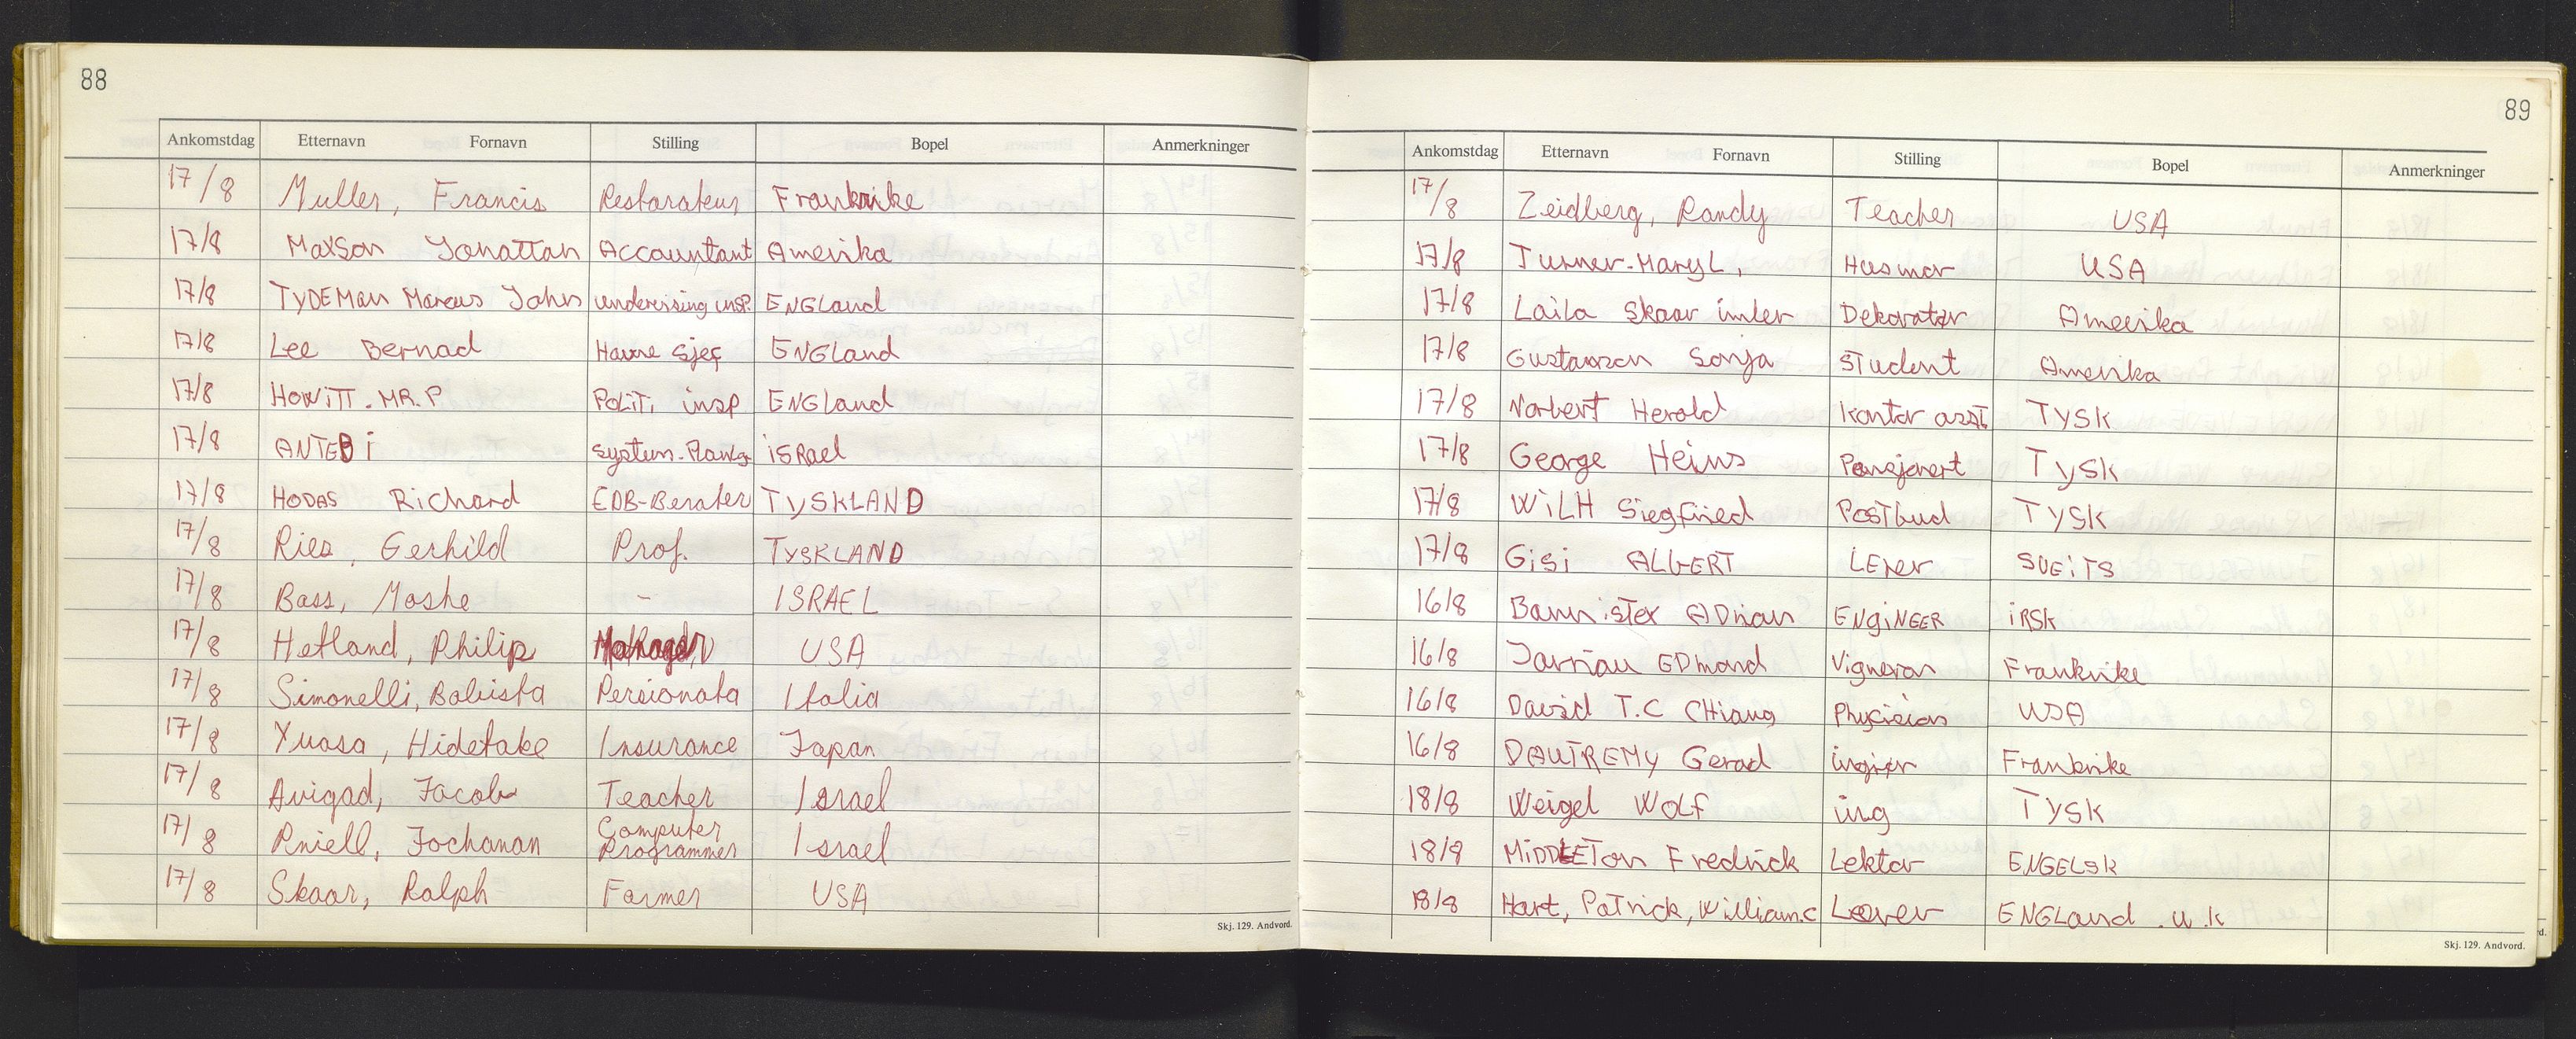 88
Ankomstdag Etternavn Fornavn Stilling Bopel Anmerkninger
17/8 Muller, Francis Restorateur Frankrike
17/8 Maxson Jonattan Accountant Amerika
17/8 TyDEMan Marcus John undervising insp. ENGLand
17/8 Lee Bernad Havne sjef ENGLand
17/8 HOWiTT. MR. P POLiTi insp ENGLand
17/8 ANTEBi System. iSRael
17/8 HODAS Richard EDB-Berater TYSKLAND
17/8 Ries, Gerhild Prof. TYSKLAND
17/8 Bass, Moshe - ISRAEL
17/8 Hetland, Philip USA
17/8 Simonelli, Batista Pensionata Italia
17/8 Yuasa, Hidetake Insurance Japan
17/8 Avigad, Jacob Teacher Israel
17/8 Pniell, Jochanan Computer Programmer Israel
17/8 Skaar, Ralph Farmer USA
Skj. 129. Andvord.
89
Ankomstdag Etternavn Fornavn Stilling Bopel Anmerkninger
17/8 Zeidberg, Randy Teacher USA
17/8 Turner-Mary L, Husmor USA
17/8 Laila Skaar imler Dekoratør Ameerika
17/8 Gustavson Sonja STudent Amerika
17/8 Norbert Herold Kontor asst TYSK
17/8 George Heins Pensjonert TYSK
17/8 WiLH Siegfried PosTbud TYSK
17/8 Gisi ALBERT LERer SVEiTS
16/8 Bannister ADrian ENgiNEER iRSK
16/8 Jarriau EDmond Vigneron Frankrike
16/8 David T.C CHiang Physician USA
16/8 DAUTREMY Gerad ingiør Frankrike
18/8 Weigel WOLF ing TYSK
18/8 MiDDLETon Fredrick Lektor ENGELSK
18/8 Hart, PaTrick, William.C Lærer ENGLand . u . k
Skj. 129. Andvord.